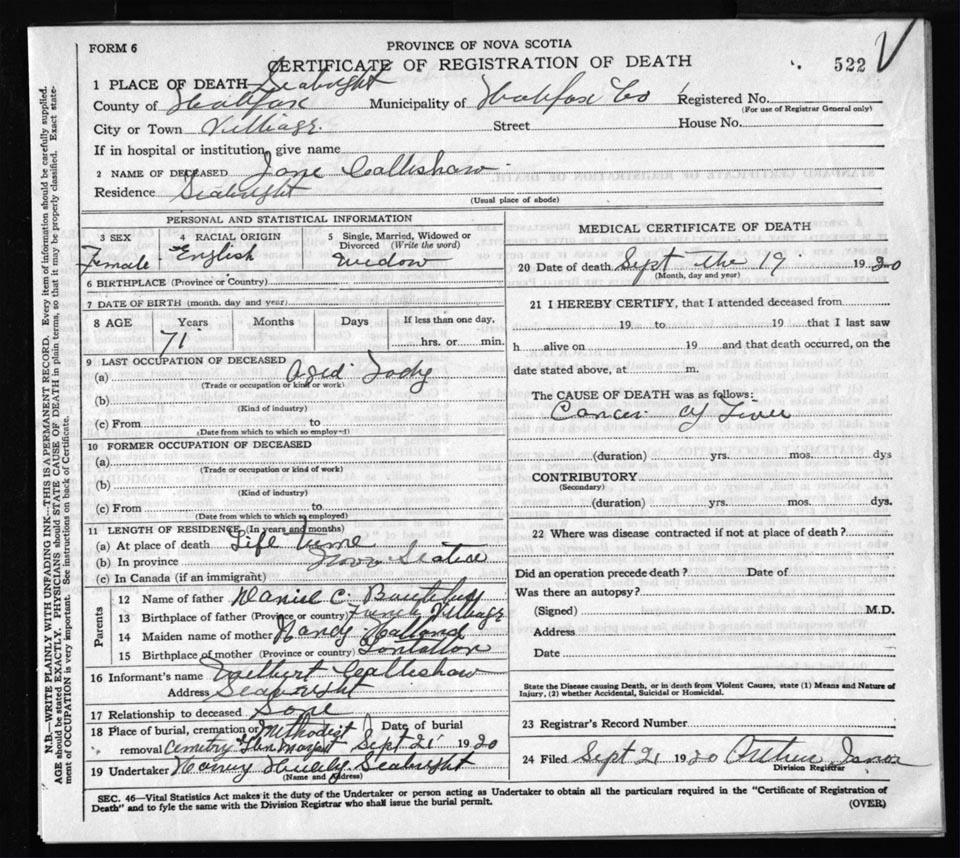 FORM 6
PROVINCE OF NOVA SCOTIA
CERTIFICATE OF REGISTRATION OF DEATH
522
1 PLACE OF DEATH Seabright
County of Halifax Municipality of Halifax Co Registered No.
(For use of Registrar General only)
City or Town Villiage. Street House No.
If in hospital or institution, give name
2 NAME OF DECEASED Jane Callishaw
Residence Seabright
(Usual place of abode)
PERSONAL AND STATISTICAL INFORMATION
3 SEX 4 RACIAL ORIGIN 5 Single, Married, Widowed or Divorced (Write the word)
Female English Widow
6 BIRTHPLACE (Province or Country)
7 DATE OF BIRTH (month, day and year)
8 AGE Years Months Days If less than one day,
71 hrs. or min.
9 LAST OCCUPATION OF DECEASED
(a) Aged Lady
(Trade or occupation or kind of work)
(b)
(Kind of industry)
(c) From to
(Date from which to which so employed)
10 FORMER OCCUPATION OF DECEASED
(a)
(Trade or occupation or kind of work)
(b)
(Kind of industry)
(c) From to
(Date from which to which so employed)
11 LENGTH OF RESIDENCE (In years and months)
(a) At place of death Life time
(b) In province Nova Scatice
(c) In Canada (if an immigrant)
Parents
12 Name of father Daniel C.
13 Birthplace of father (Province or country) French Villiage
14 Maiden name of mother Nancy
15 Birthplace of mother (Province or country)
16 Informant's name Callishaw
Address Seabright
17 Relationship to deceased Sone
18 Place of burial, cremation or removal Methodist Cemetry Glen Margret Date of burial Sept 21 1920
19 Undertaker Seabright
(Name and address)
MEDICAL CERTIFICATE OF DEATH
20 Date of death Sept the 19 1920
(Month, day and year)
21 I HEREBY CERTIFY, that I attended deceased from
19 to 19 that I last saw
h alive on 19 and that death occurred, on the
date stated above, at m.
The CAUSE OF DEATH was as follows:
Cancer of Liver
(duration) yrs. mos. dys
CONTRIBUTORY
(Secondary)
(duration) yrs. mos. dys.
22 Where was disease contracted if not at place of death?
Did an operation precede death? Date of
Was there an autopsy?
(Signed) M.D.
Address
Date
State the Disease causing Death, or in death from Violent Causes, state (1) Means and Nature of
Injury, (2) whether Accidental, Suicidal or Homicidal.
23 Registrar's Record Number
24 Filed Sept 21 1920
Division Registrar
SEC. 46—Vital Statistics Act makes it the duty of the Undertaker or person acting as Undertaker to obtain all the particulars required in the "Certificate of Registration of
Death" and to fyle the same with the Division Registrar who shall issue the burial permit.
(OVER)
N.B.—WRITE PLAINLY WITH UNFADING INK—THIS IS A PERMANENT RECORD. Every item of information should be carefully supplied.
AGE should be stated EXACTLY. PHYSICIANS should STATE CAUSE OF DEATH in plain terms, so that it may be properly classified. Exact state-
ment of OCCUPATION is very important. See instructions on back of Certificate.